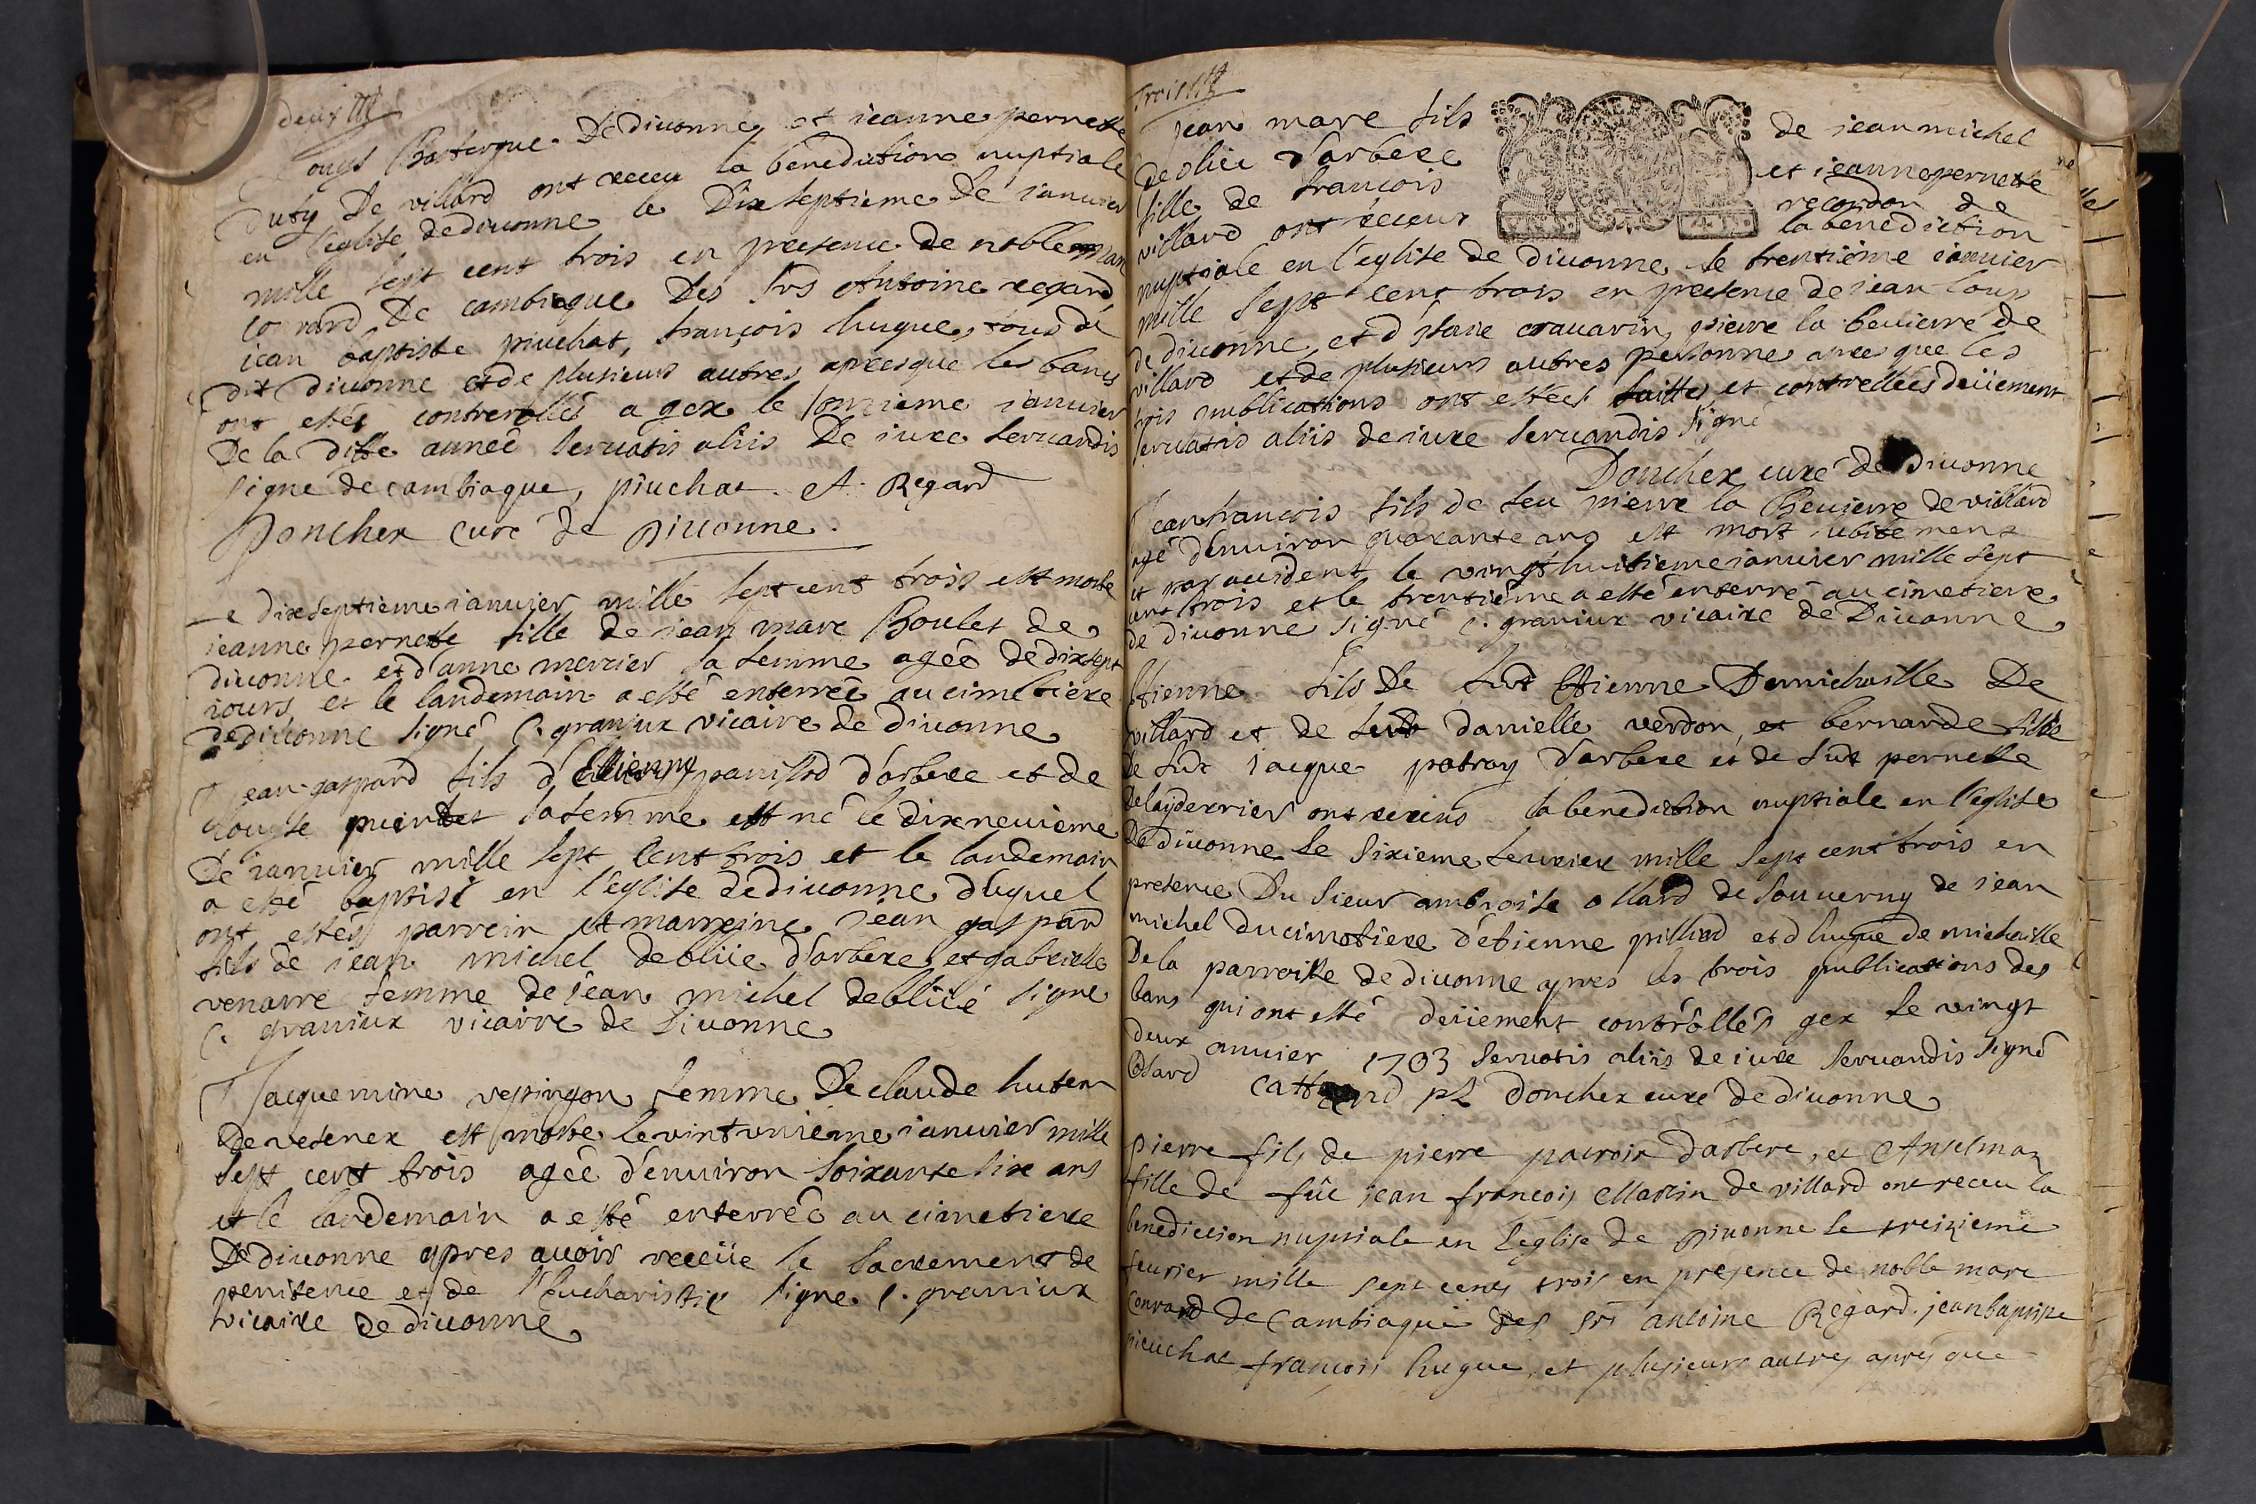 deux
Louys Chasterque De divonne, et ieanne pernette
Duty De villard ont receu la bénediction nuptiale
en l'eglise de divonne le Dix septieme De ianvier
mille sept cent trois en presence de noble
conrard De cambiague Des srs Antoine regard,
iean baptiste piuchat, françois hugue, tous de
dit divonne et de plusieurs autres apres que les bancs
ont estés contrerollés a gex le ianvier
De la ditte anneé servatis aliis De iure servandis
signé de cambiague, piuchat. A. Regard
Ponchex curé de Divonne.
Le dixseptieme ianvier mille sept cent trois est morte
ieanne pernette fille de iean marc Boulet de
divonne. et d'anne mercier sa femme ageé de dixsept
iours, et le landemain a esté enterreé au cimetiere
de divonne signé C. graniux vicaire de divonne
Jean gaspard fils d'Estienne panissod d'arbere et de
Louyse sa femme est né le dixneuvieme
De ianvier mille sept cent trois et le landemain
a esté baptisé en l'eglise de divonne duquel
ont estés parrein et marreine iean gaspard
fils de iean michel deblüe d'arbere et gabrielle
venarre femme de iean michel deblüé signé
C. graniux vicaire de divonne
Jacquemine vepingon femme De claude huten
De vesenex est morte le vint unieme ianvier mille
sept cent trois ageé d'environ soixante six ans
et le landemain a esté enterreé au cimetiere
De divonne apres avoir receüe le sacrement de
penitence et de l'Eucharistie signé C. graniux
vicaire de divonne
Trois
Jean marc fils de iean michel
deblüe d'arbere et ieanne pernette
fille de françois recordon de
villard ont receux la bénediction
nuptiale en l'eglise de divonne, le trentiéme ianvier
mille sept cent trois en presence de iean louis
de divonne, et d' cravarin, pierre la beviere de
villard et de plusieurs autres personne apres que les
trois publications ont estées faittes, et contrellées deüement
servatis aliis de iure servandis signé
Donchex curé de Divonne
Jean francois fils de feu pierre la Bevierre de villard
agé d'environ quarante ans est mort subitement
et par accident le vingt huitieme ianvier mille sept
cent trois et le trentiéme a esté enterré au cimetiere
de divonne signé C. graniux vicaire de Divonne
Etienne fils De fut Etienne Demichaille De
villard et de fut danielle verdon, et bernarde fille
De fut iacque patroy d'arbere et de fut pernette
Delayderrier ont receus la benediction nuptiale en l'eglise
De divonne le sixieme fevrier mille sept cent trois en
presence Du sieur ambroise ollard de souverny de iean
michel Ducimetiere d'étienne pilliod et d'hugue de michaille
De la parroisse de divonne apres les trois publications des
bans qui ont esté deüement contrôllés gex le vingt
deux anvier 1703 servatis aliis de iure servandis signé
ollard pt donchex curé de divonne
Pierre fils de pierre patroix d'arbere, et Anselman
fille de fûe jean francois Martin de villard ont receu la
benediction nuptiale en l'eglise de Divonne le treizieme
fevrier mille sept cents trois en presence de noble marc
Conrard de Cambiague des srs antoine Regard. jean baptiste
piuchat francois hugue, et plusieurs autres apres que